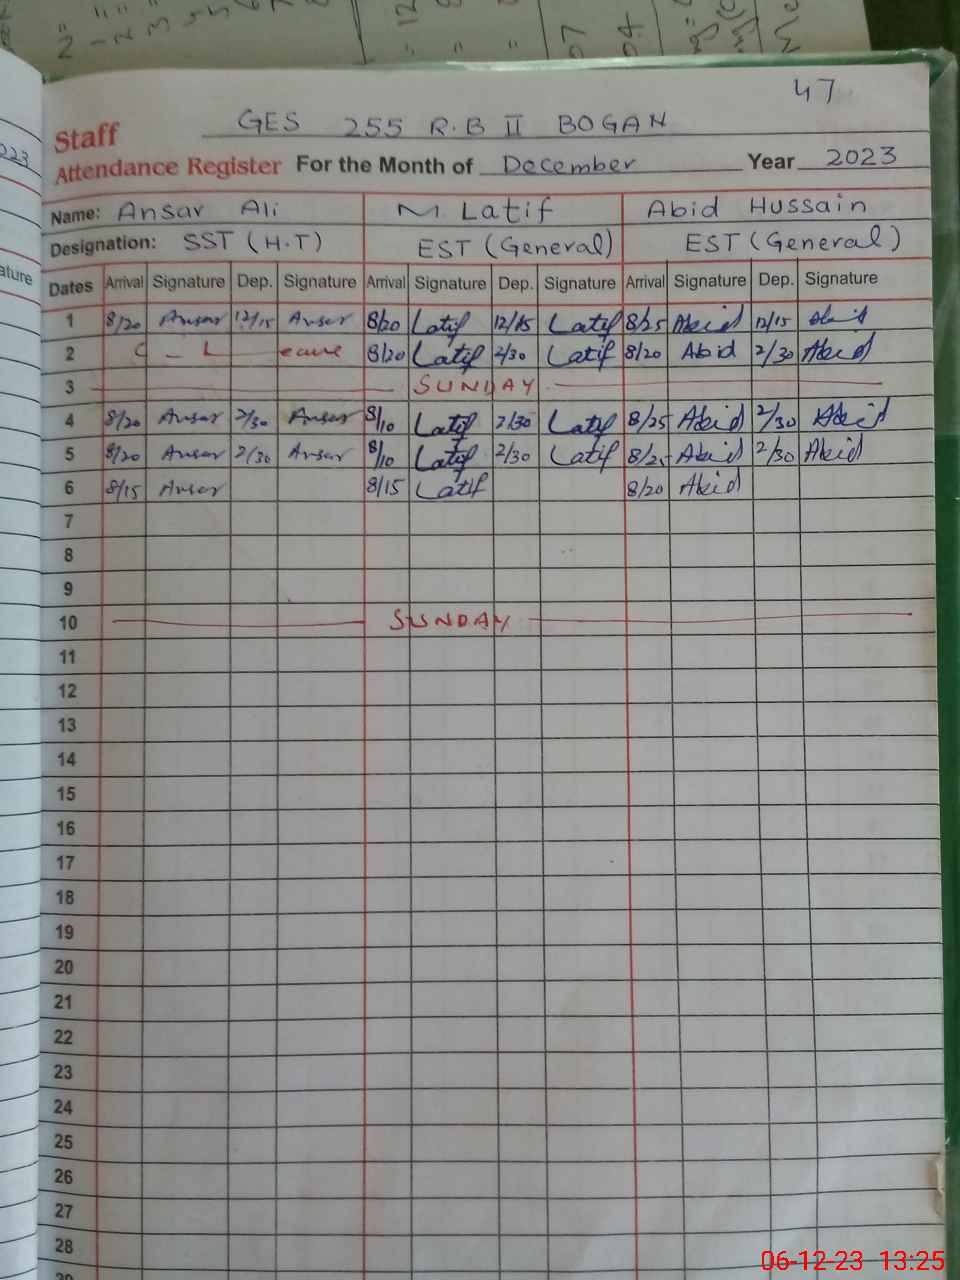 47
GES 255 R.B II BOGAN
Staff
Attendance Register For the Month of December Year 2023
Name: Ansar Ali M. Latif Abid Hussain
Designation: SST (H.T) EST (General) EST (General)
Dates Arrival Signature Dep. Signature Arrival Signature Dep. Signature Arrival Signature Dep. Signature
1 8/20 Ansar 12/15 Ansar 8/20 Latif 12/15 Latif 8/25 Abid 12/15 Abid
2 C - Leave 8/20 Latif 2/30 Latif 8/20 Abid 2/30 Abid
3 SUNDAY
4 8/20 Ansar 2/30 Ansar 8/10 Latif 2/30 Latif 8/25 Abid 2/30 Abid
5 8/20 Ansar 2/30 Ansar 8/10 Latif 2/30 Latif 8/25 Abid 2/30 Abid
6 8/15 Ansar 8/15 Latif 8/20 Abid
7
8
9
10 SUNDAY
11
12
13
14
15
16
17
18
19
20
21
22
23
24
25
26
27
28
06-12-23 13:25